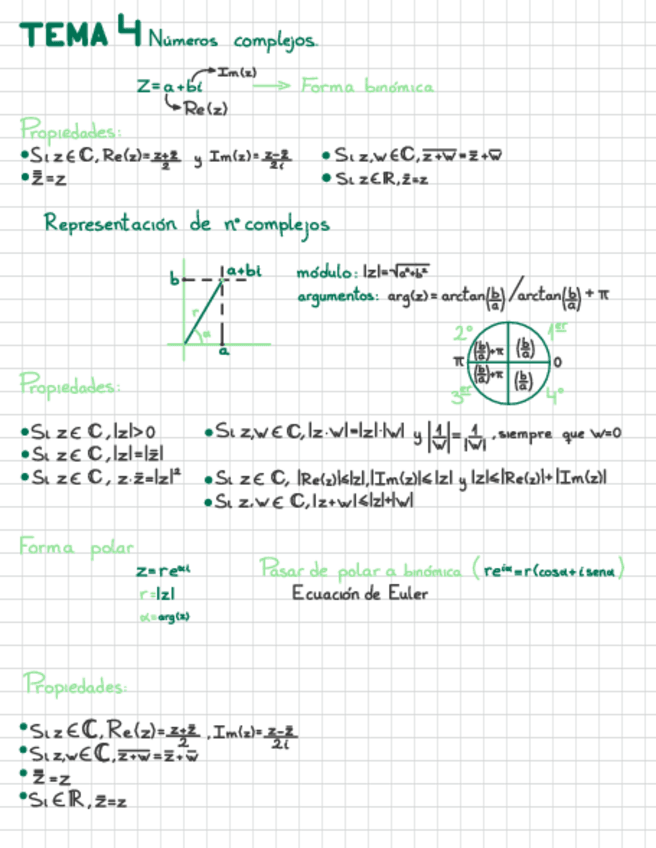 TEMA 4 Números complejos.
Z=a+bi
Im(z)
Re(z)
Forma binómica
Propiedades:
• Si z∈ℂ, Re(z)=(z+z̄)/2 y Im(z)=(z-z̄)/2i
• z̿=z
• Si z,w∈ℂ, \overline{z+w}=z̄+w̄
• Si z∈ℝ, z̄=z
Representación de nº complejos
b
a+bi
r
α
a
módulo: |z|=√(a²+b²)
argumentos: arg(z)=arctan(b/a)/arctan(b/a)+π
2º
1er
(b/a)+π
(b/a)
π
0
(b/a)+π
(b/a)
3er
4º
Propiedades:
• Si z∈ℂ, |z|>0
• Si z∈ℂ, |z|=|z̄|
• Si z∈ℂ, z·z̄=|z|²
• Si z,w∈ℂ, |z·w|=|z|·|w| y |1/w|=1/|w|, siempre que w=0
• Si z∈ℂ, |Re(z)|≤|z|,|Im(z)|≤|z| y |z|≤|Re(z)|+|Im(z)|
• Si z,w∈ℂ, |z+w|≤|z|+|w|
Forma polar
z=re^αi
r=|z|
α=arg(z)
Pasar de polar a binómica (re^iα=r(cosα+isenα)
Ecuación de Euler
Propiedades:
• Si z∈ℂ, Re(z)=(z+z̄)/2, Im(z)=(z-z̄)/2i
• Si z,w∈ℂ, \overline{z+w}=z̄+w̄
• z̿=z
• Si∈ℝ, z̄=z